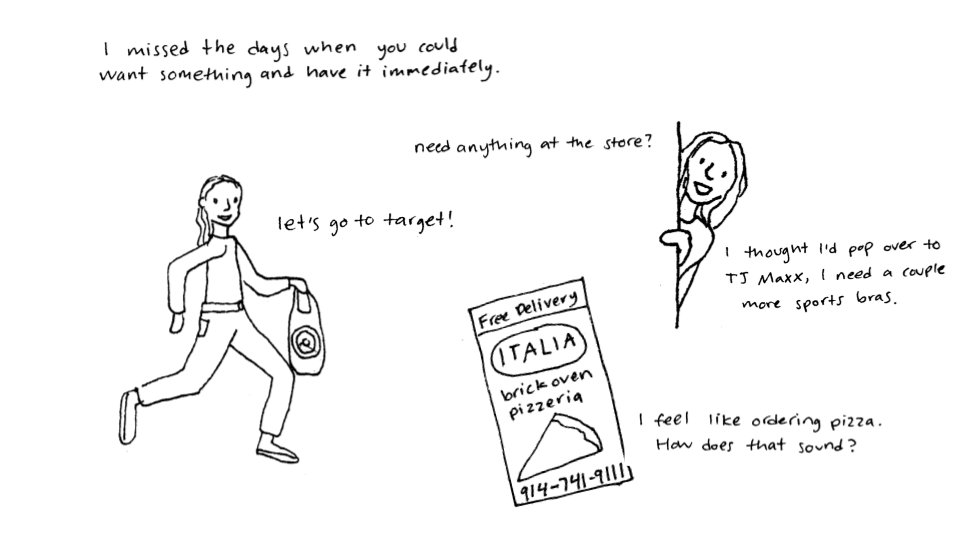 I missed the days when you could
want something and have it immediately.
need anything at the store?
let's go to target!
I thought I'd pop over to
TJ Maxx, I need a couple
more sports bras.
Free Delivery
ITALIA
brick oven
pizzeria
914-741-9111
I feel like ordering pizza.
How does that sound?